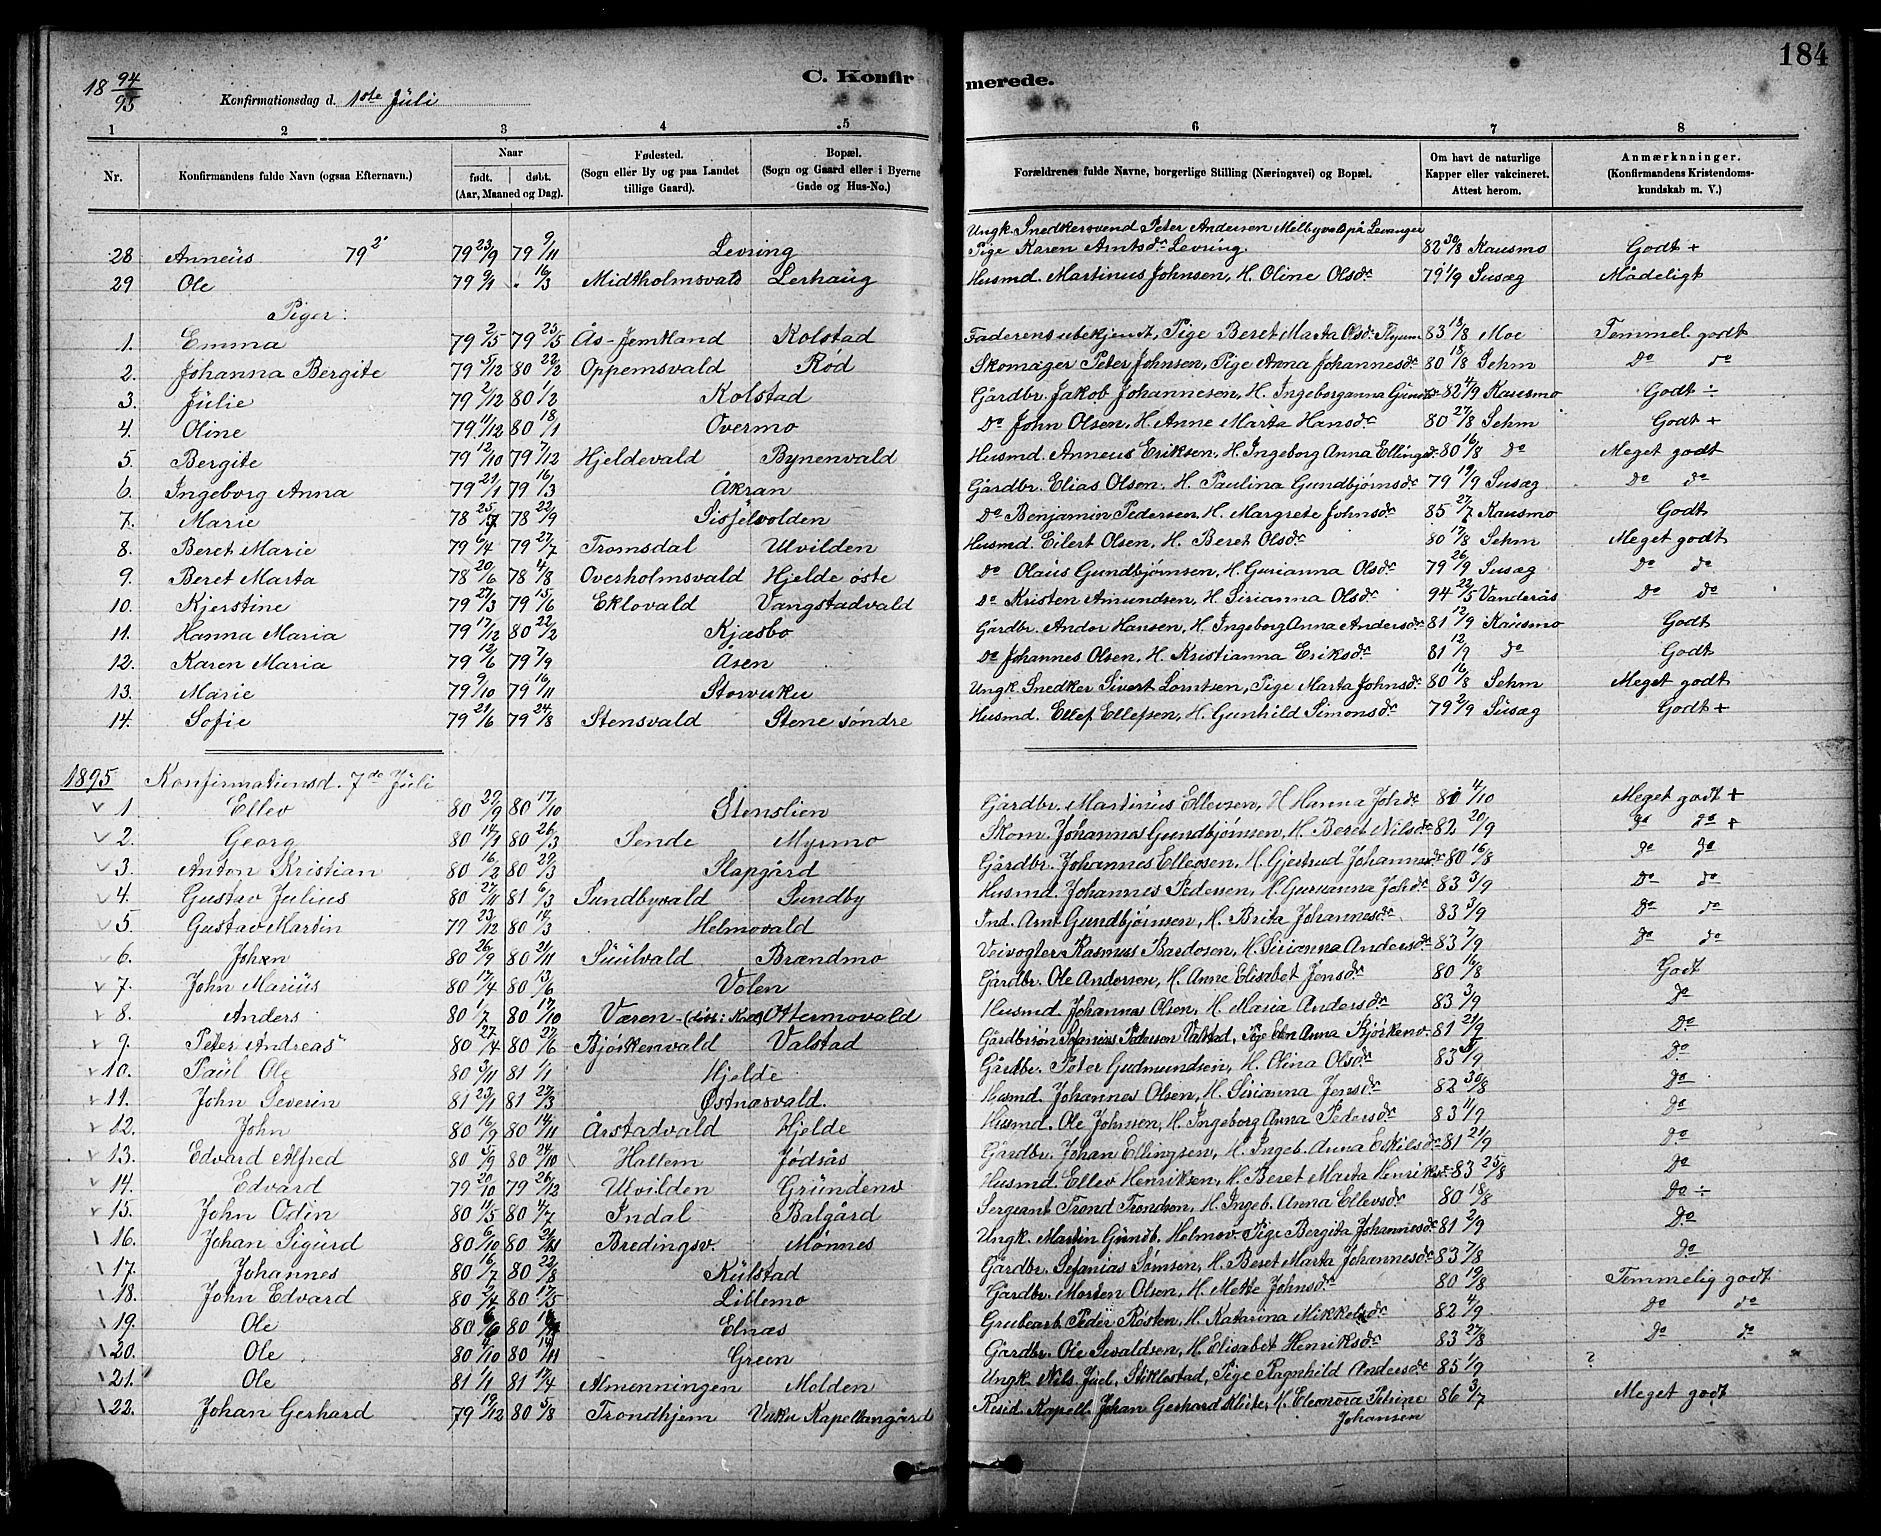 184
18 94/95 Konfirmationsdag d. 1ste Juli
C. Konfirmerede.
1 2 3 4 5 6 7 8
Nr. Konfirmandens fulde Navn (ogsaa Efternavn). Naar født. døbt. (Aar, Maaned og Dag). Fødested. (Sogn eller By og paa Landet tillige Gaard). Bopæl. (Sogn og Gaard eller i Byerne Gade og Hus-No.) Forældrenes fulde Navne, borgerlige Stilling (Næringsvei) og Bopæl. Om havt de naturlige Kapper eller vakcineret. Attest herom. Anmærknninger. (Konfirmandens Kristendoms-kundskab m. V.)
28 Anneus 79 23/9 79 9/11 Levring Ungk. Snedkersvend Peter Andersen Melbyvald på Levanger Pige Karen Arntsdr Levring. 82 30/8 Kausmo Godt +
29 Ole 79 9/1 . 16/3 Midtholmsvald Lerhaug Husmd. Martinus Johnsen, H. Oline Olsdr 79 1/9 Susæg Mådeligt
Piger:
1. Emma 79 2/5 79 25/5 Ås-Jemtland Kolstad Faderen ubekjendt, Pige Beret Marta Olsdr 83 18/8 Moe Temmel. godt
2. Johanna Bergite 79 5/12 80 22/2 Oppemsvald Rød Skomager Peter Johnsen, Pige Anna Johannesdr 80 18/8 Sehm Do do
3. Julie 79 2/12 80 1/2 Kolstad Gårdbr. Jakob Johannesen, H. Ingeboranna 82 4/9 Kausmo Godt ÷
4. Oline 79 11/12 80 18/1 Overmo Do John Olsen, H. Anne Marta Hansdr 80 27/8 Sehm Godt +
5. Bergite 79 12/10 79 7/12 Hjeldevald Bynenvald Husmd. Anneus Eriksen, H. Ingeborg Anna Ellingsdr 80 16/8 do Meget godt
6. Ingeborg Anna 79 21/1 79 16/3 Åkran Gårdbr. Elias Olsen, H. Paulina Gundbjørnsdr 79 19/9 Susæg Do do
7. Marie 78 25/7 78 22/9 Sisselvolden Do Benjamin Pedersen, H. Margrete Johnsdr 85 27/7 Kausmo Godt
8. Beret Marie 79 6/4 79 27/7 Tromsdal Ulvilden Husmd. Eilert Olsen, H. Beret Olsdr 80 17/8 Sehm Meget godt
9. Beret Marta 78 20/6 78 4/8 Overholmsvald Hjelde øste Do Olaus Gundbjørnsen, H. Gurianna Olsdr 79 26/9 Susæg Do do
10. Kjerstine 79 27/3 79 15/6 Eklovald Vangstadvald Do Kristen Amundsen, H. Sirianna Olsdr 94 22/5 Vanderås Do do
11. Hanna Maria 79 17/12 80 22/2 Kjæsbo Gårdbr. Andor Hansen, H. Ingeborg Anna Andersdr 81 12/9 Kausmo Godt
12. Karen Maria 79 12/6 79 7/9 Åsen Do Johannes Olsen, H. Kristianna Eriksdr 81 12/9 do Godt
13. Marie 79 9/10 79 16/11 Storvuku Ungk. Snedker Sivert Lorntsen, Pige Marta Johnsdr 80 16/8 Sehm Meget godt
14. Sofie 79 21/6 79 24/8 Stensvald Stene søndre Husmd. Ellef Ellefsen, H. Gunhild Simonsdr 79 2/9 Susæg Godt +
1895 Konfirmationsd. 7de Juli
1 Ellev 80 29/9 80 17/10 Stenslien Gårdbr. Martinus Ellevsen, H. Hanna Johdr 81 4/10 Meget godt +
2. Georg 80 14/1 80 26/3 Sende Myrmo Skom. Johannes Gundbjørnsen, H. Beret Nilsdr 82 20/9 Do do +
3. Anton Kristian 80 16/2 80 29/3 Slapgård Gårdbr. Johannes Ellevsen, H. Gjertrud Johannesdr 80 16/8 Do do
4. Gustav Julius 80 27/11 81 6/3 Sundbyvald Sundby Husmd. Johannes Pedersen, H. Gurianna Johdr 83 3/9 Do do
5. Gustav Martin 79 23/12 80 14/3 Helmovald Ind. Arnt Gundbjørnsen, H. Brita Johannesdr 83 3/9 Do do
6. John 80 26/9 80 21/11 Suulvald Brændmo Veivogter Rasmus Bardosen, H. Sirianna Andersdr 83 7/9 Do do
7. John Marius 80 17/4 80 13/6 Volen Gårdbr. Ole Andersen, H. Anne Elisabet Jonsdr 80 16/8 Godt
8. Anders 80 1/7 80 17/10 Væren Ottermovald Husmd. Johannes Olsen, H. Maria Andersdr 83 3/9 Do
9. Peter Andreas 80 27/4 80 27/6 Bjørkenvald Valstad Gårdbrsøn Sefanias Pedersen Valstad, Pige Elen Anna Bjørkenv. 81 21/9 Do
10. Paul Ole 80 3/11 81 1/1 Hjelde Gårdbr. Peter Gudmundsen, H. Olina Olsdr 83 3/9 Do
11. John Severin 81 23/1 81 27/3 Østnæsvald. Husmd. Johannes Olsen, H. Sirianna Jensdr 82 30/8 Do
12. John 80 16/9 80 14/11 Årstadvald Hjelde Husmd. Ole Johnsen, H. Ingeborg Anna Pedersdr 83 11/9 Do
13. Edvard Alfred 80 5/9 80 24/10 Hallem Jødsås Gårdbr. Johan Ellingsen, H. Ingeb. Anna Eskilsdr 81 21/9 Do
14. Edvard 79 20/10 79 26/12 Ulvilden Grundenv Husmd. Ellev Henriksen, H. Beret Marta Henriksdr 83 25/8 Do
15. John Odin 80 11/5 80 4/7 Indal Balgård Sergeant Trond Trondsen, H. Ingeb. Anna Ellevsdr 80 18/8 Do ÷
16. Johan Sigurd 80 6/10 80 21/11 Bredingsv. Mønnes Ungk. Martin Gundb. Helmov. Pige Bergita Johannesdr 81 2/9 Do
17. Johannes 80 16/7 80 22/8 Kulstad Gårdbr. Sefanias Sørnsen, H. Beret Marta Johannesdr 83 7/8 Do
18. John Edvard 80 2/4 80 17/5 Lillemo Gårdbr. Morten Olsen, H. Mette Johnsdr 80 19/8 Temmelig godt
19. Ole 80 6/6 80 Elnæs Grubearb. Peder Røsten, H. Katarina Nikkelsdr 82 4/9 Do do
20. Ole 80 4/10 80 14/11 Green Gårdbr. Ole Sevaldsen, H. Elisabet Henriksdr 83 27/8 Do do
21. Ole 81 1/1 81 17/4 Almenningen Molden Ungk. Nils Juel, Stiklestad, Pige Ragnhild Andersdr 85 1/9 ?
22. Johan Gerhard 79 19/12 80 5/8 Trondhjem Vuku Kapellangård Resid. Kapell. Johan Gerhard Kleite, H. Eleonora Petrine Johansen 86 3/7 Meget godt